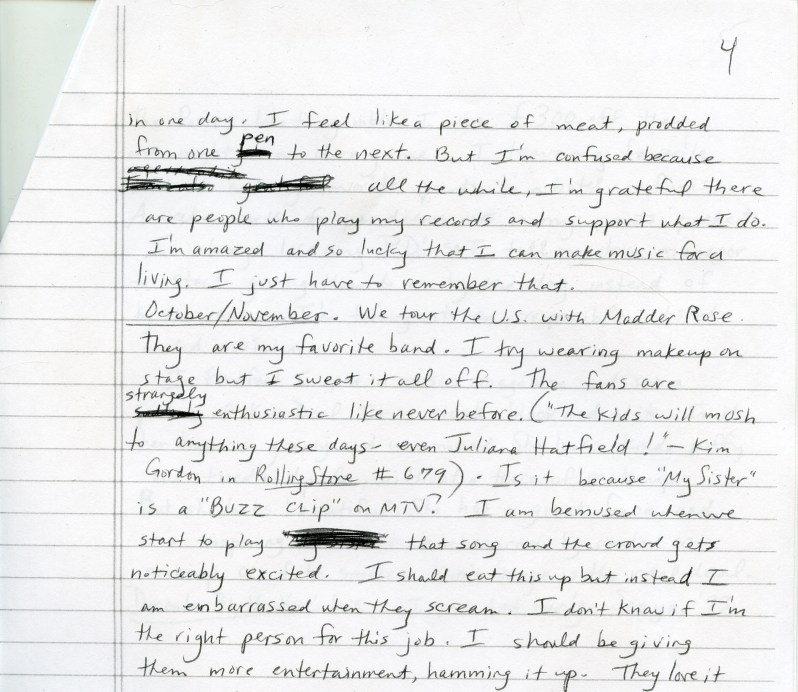 4
in one day. I feel like a piece of meat, prodded
pen
from one to the next. But I'm confused because
all the while, I'm grateful there
are people who play my records and support what I do.
I'm amazed and so lucky that I can make music for a
living. I just have to remember that.
October/November. We tour the U.S. with Madder Rose.
They are my favorite band. I try wearing makeup on
stage but I sweat it all off. The fans are
strangely
enthusiastic like never before. ("The kids will mosh
to anything these days - even Juliana Hatfield!" - Kim
Gordon in Rolling Stone # 679). Is it because "My Sister"
is a "BUZZ CLIP" on MTV? I am bemused when we
start to play that song and the crowd gets
noticeably excited. I should eat this up but instead I
am embarrassed when they scream. I don't know if I'm
the right person for this job. I should be giving
them more entertainment, hamming it up. They love it